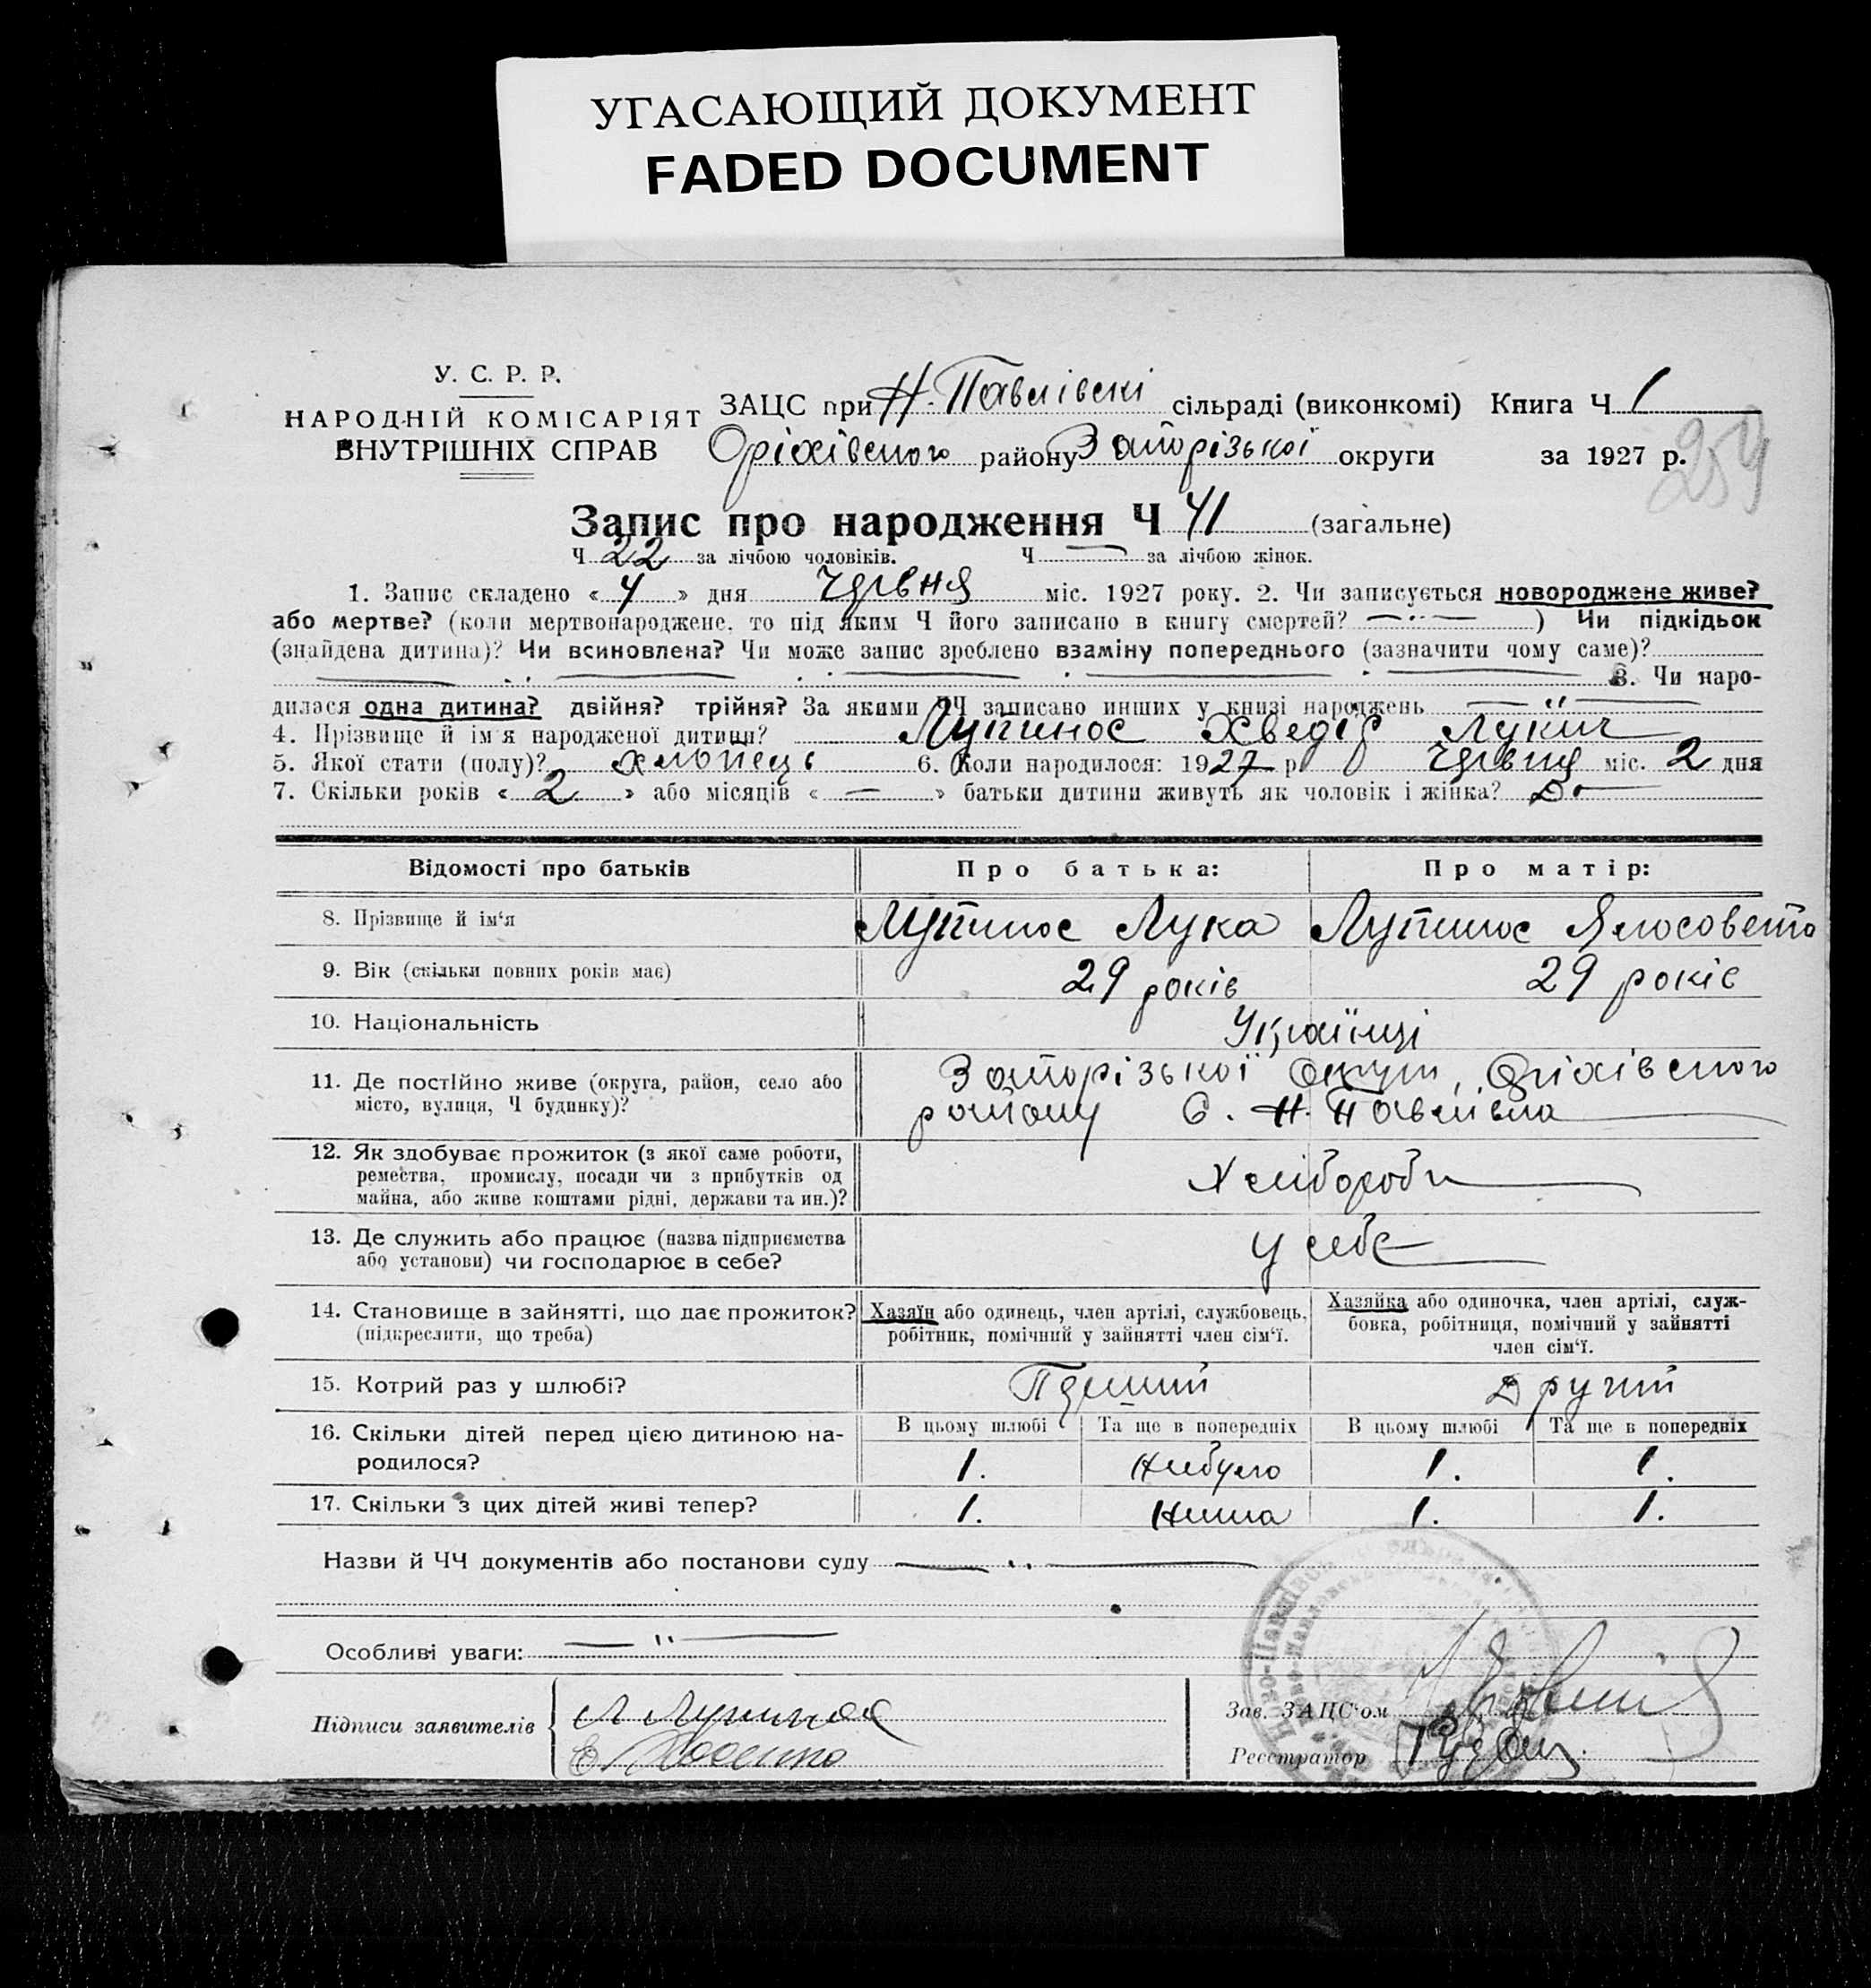 УГАСАЮЩИЙ ДОКУМЕНТ
FADED DOCUMENT
У. С. Р. Р.
НАРОДНІЙ КОМІСАРІЯТ
ВНУТРІШНІХ СПРАВ
ЗАЦС при Н. Павлівскі сільраді (виконкомі) Книга Ч 1
Оріхівського району Запорізької округи за 1927 р.
259
Запис про народження Ч 41 (загальне)
Ч 22 за лічбою чоловіків. Ч — за лічбою жінок.
1. Запис складено « 4 » дня Червня міс. 1927 року. 2. Чи записується новороджене живе?
або мертве? (коли мертвонароджене, то під яким Ч його записано в книгу смертей? —··— ) Чи підкідьок
(знайдена дитина)? Чи всиновлена? Чи може запис зроблено взаміну попереднього (зазначити чому саме)?
3. Чи наро-
дилася одна дитина? двійня? трійня? За якими ЧЧ записано инших у книзі народжень — " —
4. Прізвище й ім'я народженої дитини? Лупинос Хведір Лукич
5. Якої стати (полу)? хлопець 6. Коли народилося: 1927 р Червня міс. 2 дня
7. Скільки років « 2 » або місяців « — » батьки дитини живуть як чоловік і жінка?
Відомості про батьків Про батька: Про матір:
8. Прізвище й ім'я Лупинос Лука Лупинос Ялосовета
9. Вік (скільки повних років має) 29 років 29 років
10. Національність Українці
11. Де постійно живе (округа, район, село або Запорізької Округи, Оріхівского
місто, вулиця, Ч будинку)? району С. Н. Павлівка
12. Як здобуває прожиток (з якої саме роботи,
ремества, промислу, посади чи з прибутків од Хлібороби
майна, або живе коштами рідні, держави та ин.)?
13. Де служить або працює (назва підприємства у себе
або установи) чи господарює в себе?
14. Становище в зайнятті, що дає прожиток? Хазяїн або одинець, член артілі, службовець, Хазяйка або одиночка, член артілі, служ-
(підкреслити, що треба) робітник, помічний у зайнятті член сім'ї. бовка, робітниця, помічний у зайнятті
член сім'ї.
15. Котрий раз у шлюбі? Перший Другий
16. Скільки дітей перед цією дитиною на- В цьому шлюбі Та ще в попередніх В цьому шлюбі Та ще в попередніх
родилося? 1. Небуло 1. 1.
17. Скільки з цих дітей живі тепер? 1. Нима 1. 1.
Назви й ЧЧ документів або постанови суду — ·· —
Особливі уваги: — " —
Підписи заявителів Л Лупинос
Зав. ЗАЦС'ом
Реєстратор